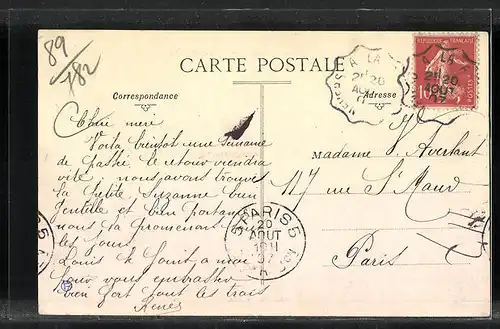 89
182
CARTE POSTALE
Correspondance
Adresse
REPUBLIQUE FRANÇAISE
10
POSTES
A LA
20
AOUT
Chère mere
Voila bientot une semaine
de passé le retour viendra
vite, nous avons trouvés
la petite Suzanne bien
gentille et bien portante
nous la promenons
les jours
Louis se joint a moi
pour vous embrasser
bien fort tout les trois
René
Madame V.
117 rue St Maur
Paris
PARIS 5
20
AOUT